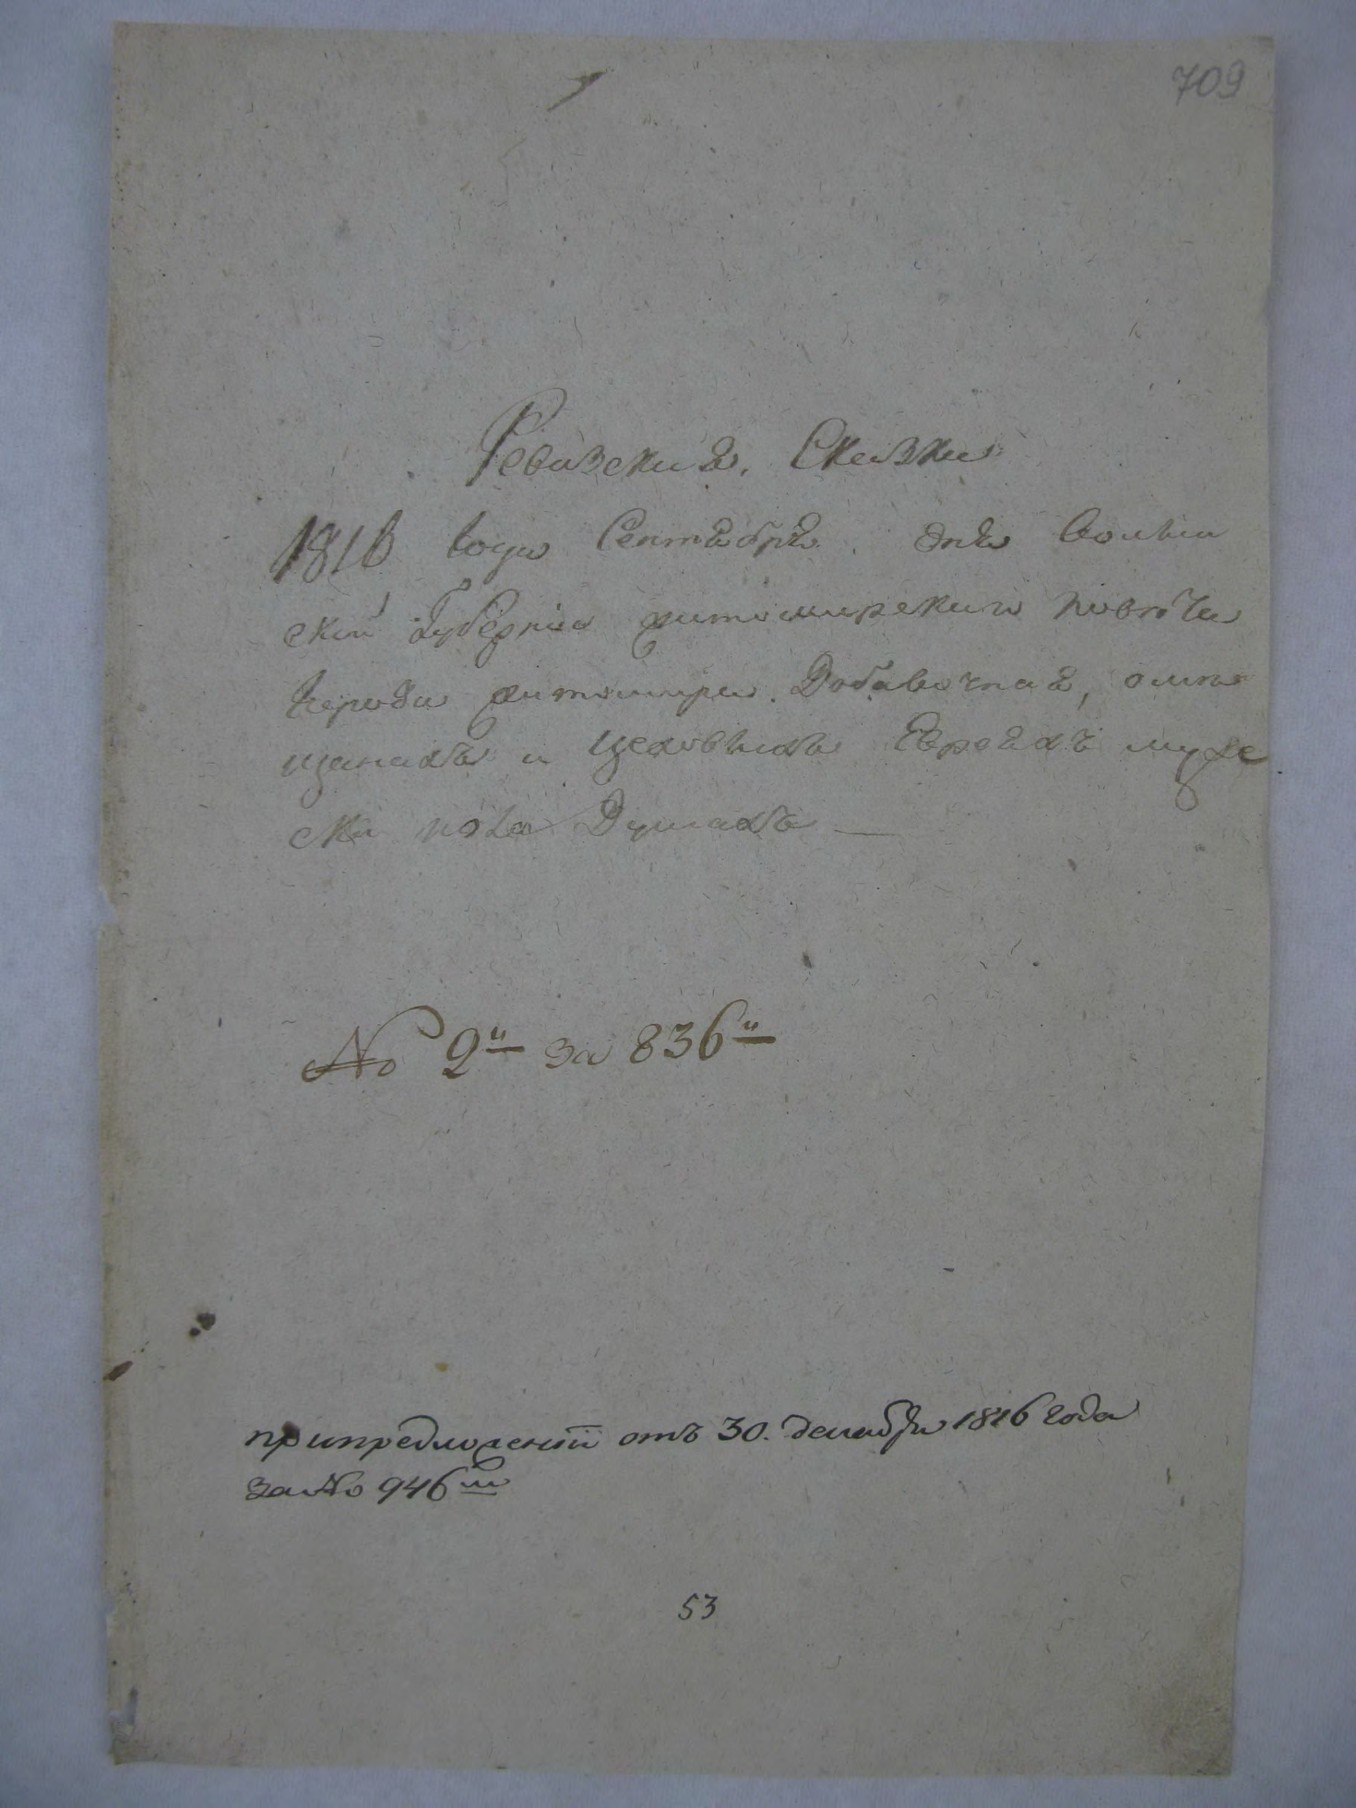 709
Ревизския Сказки
1816 года Сентября дня Волын
ской Губернии житомирскаго повета
города житомира Добавочная, о ме
щанахъ и цеховыхъ Евреяхъ муже
ска пола Душахъ —
№ 2й за 836й
при предложении отъ 30. декабря 1816 года
за № 946м
53